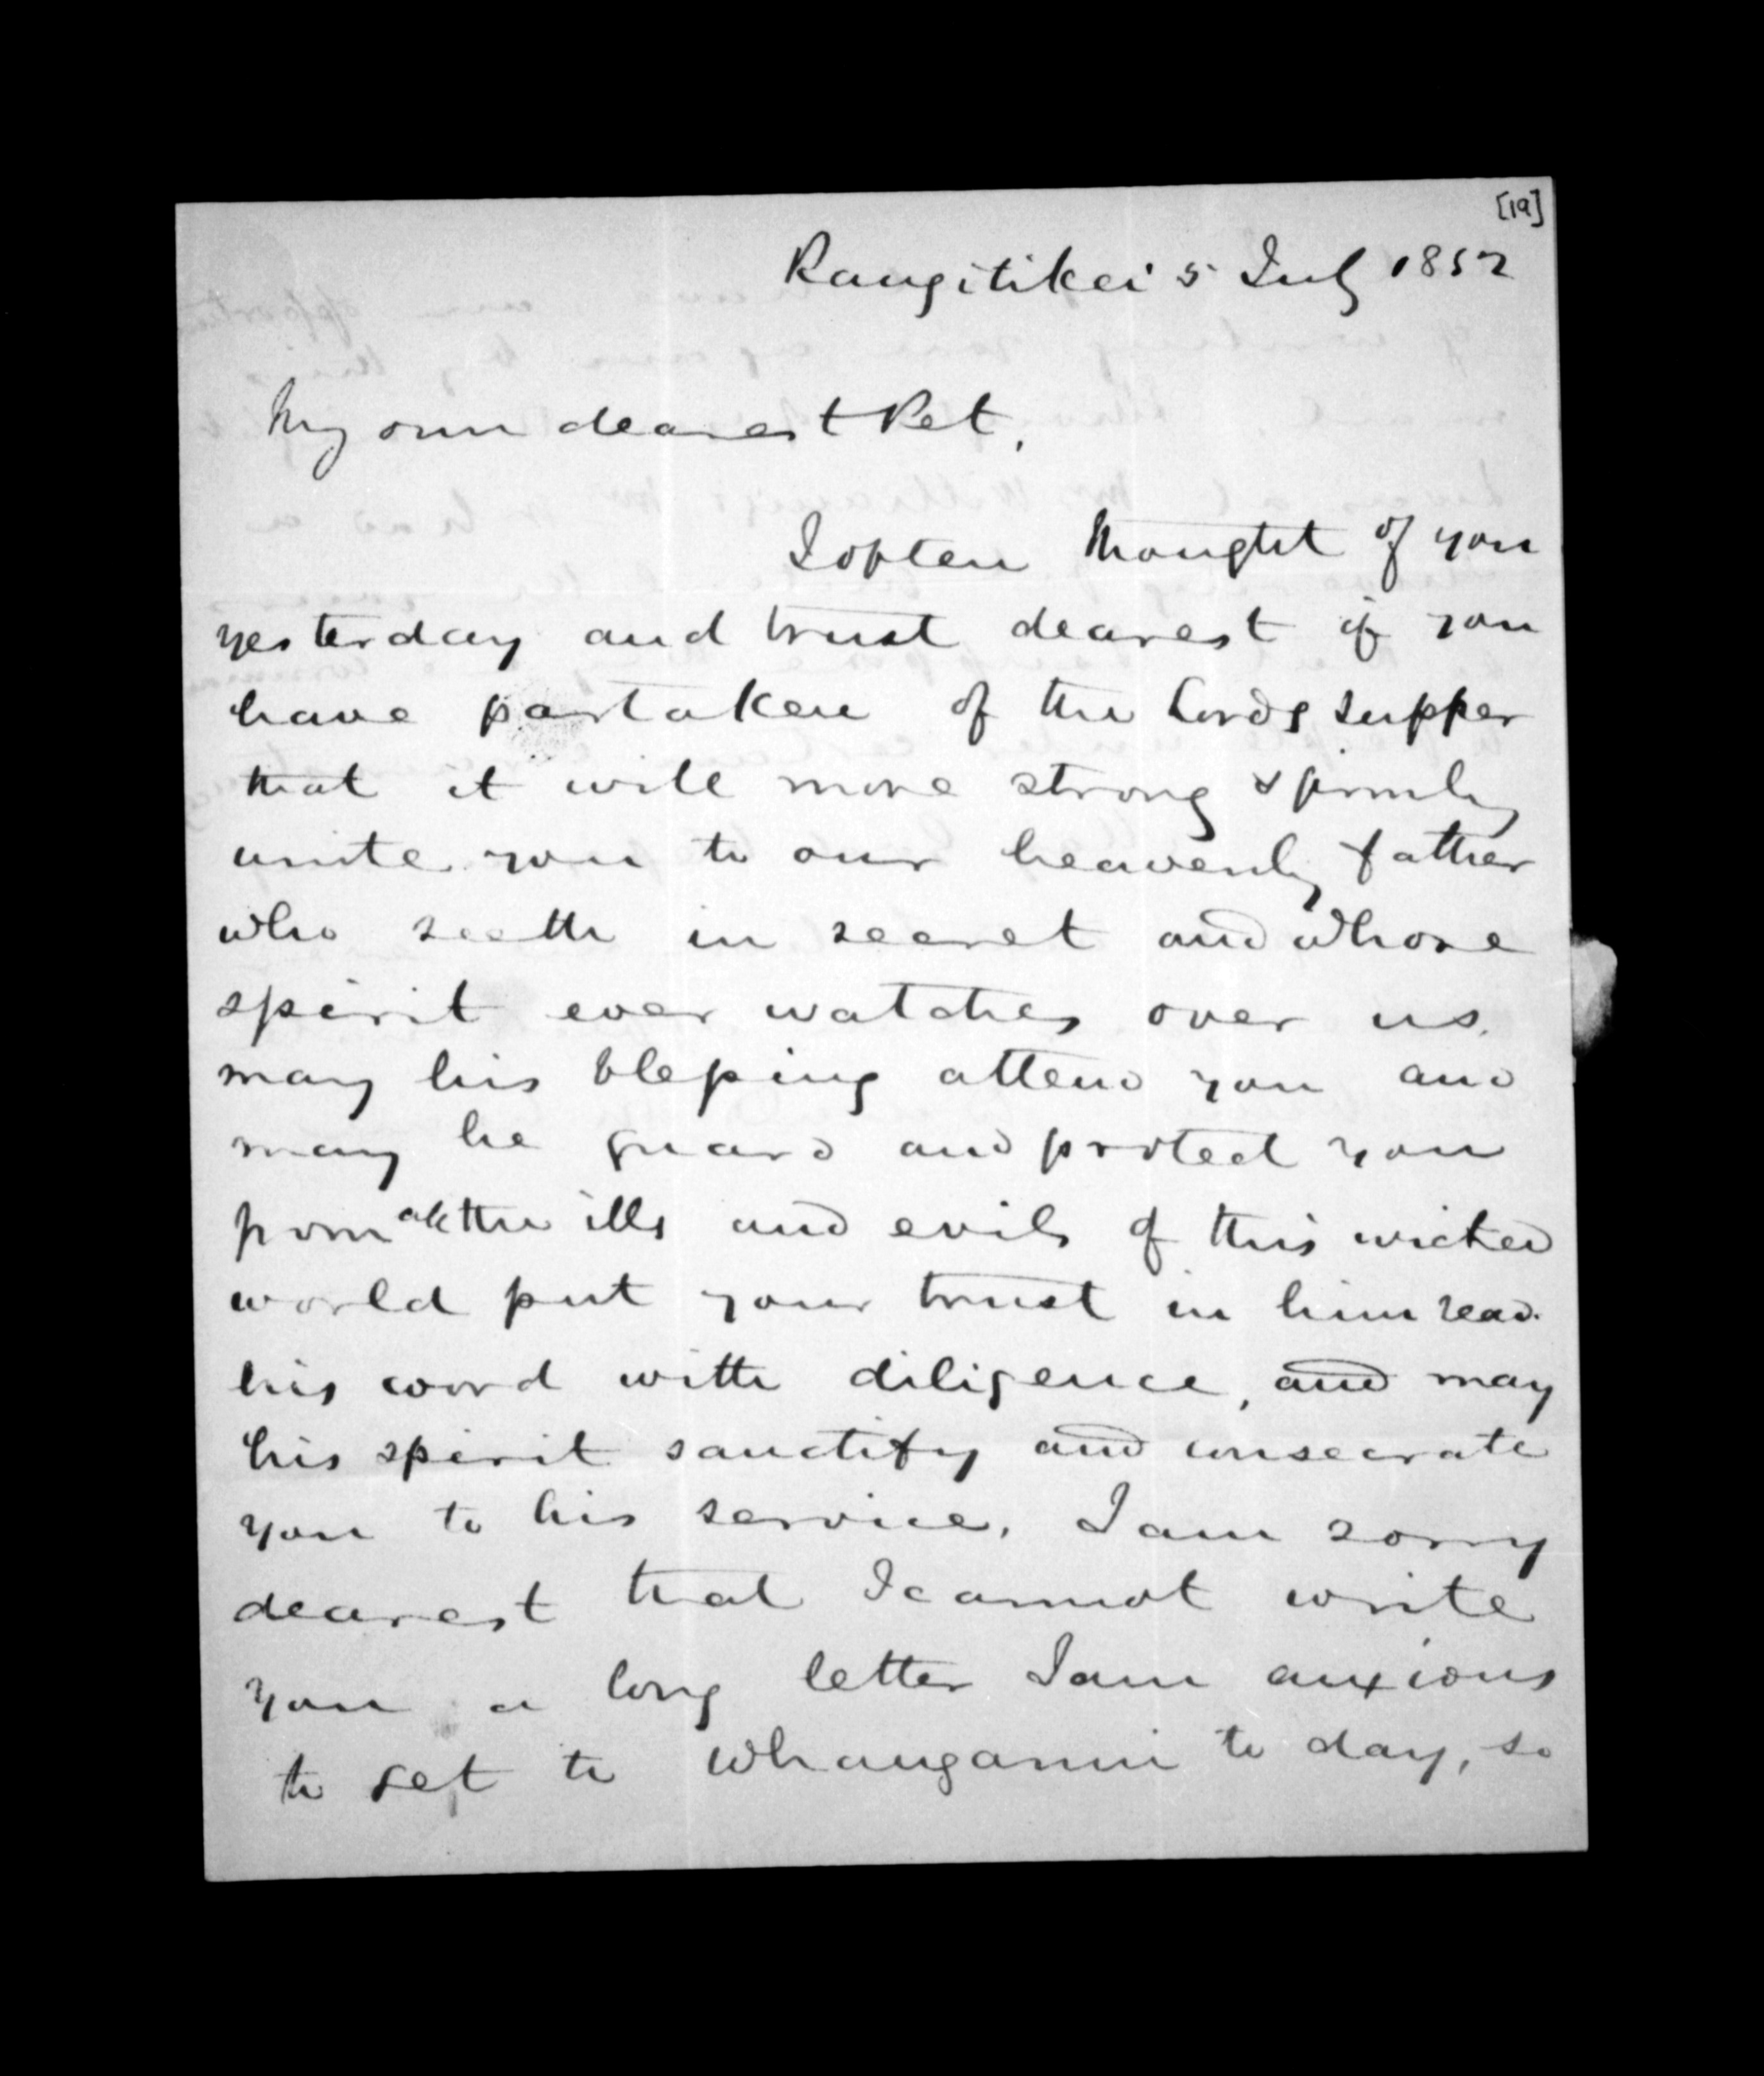 [19]
Rangitikei 5 July 1852
My own dearest Pet,
I often thought of you
yesterday and trust dearest if you
have partaken of the Lords supper
that it will more strong & firmly
unite you to our heavenly father
who seeth in secret and whose
spirit ever watches over us.
may his blessing attend you and
may he guard and protect you
from all the ills and evils of this wicked
world put your trust in him read
his word with diligence, and may
his spirit sanctify and consecrate
you to his service. I am sorry
dearest that I cannot write
you a long letter I am anxious
to get to Whanganui to day, so